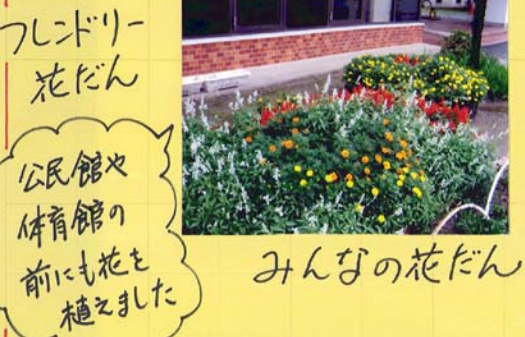 フレンドリー
花だん
公民館や
体育館の
前にも花を
植えました
みんなの花だん